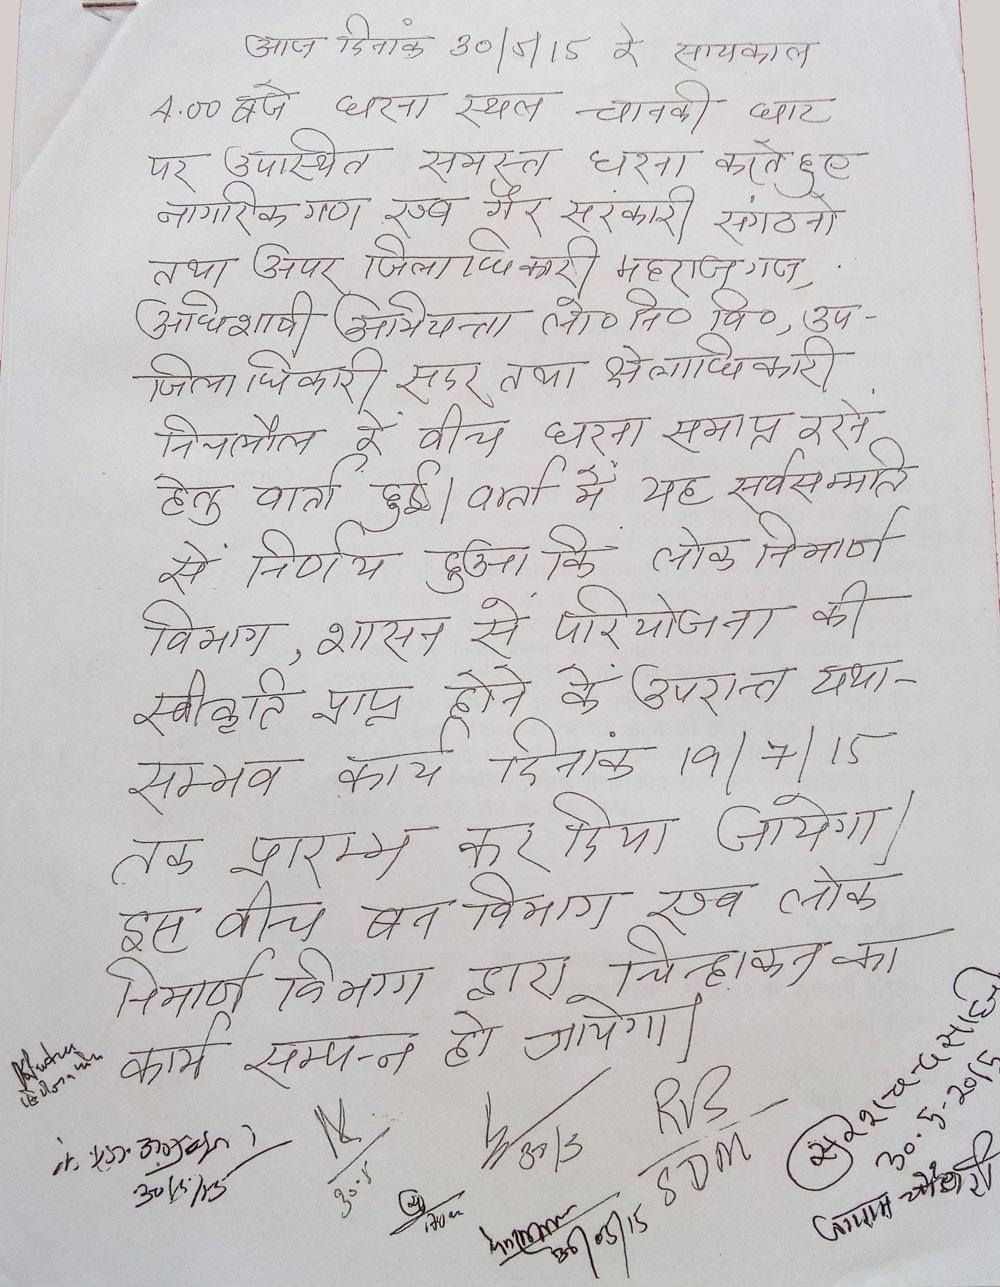 आज दिनांक 30/5/15 के सायकाल
4.00 बजे धरना स्थल चानकी घाट
पर उपास्थित समस्त धरना करते हुए
नागरिक गण एव्व गैर सरकारी संगठनों
तथा अपर जिलाधिकारी महराजगज,
अधिशाषी अभियन्ता लो० नि० वि०, उप-
जिलाधिकारी सदर, तथा क्षेत्राधिकारी
निचलौल के वीच धरना समाप्त करने
हेतु वार्ता हुई। वार्ता में यह सर्वसम्मति
से निर्णय हुआ कि लोक निमार्ण
विभाग, शासन से परियोजना की
स्वीकृति प्राप्त होने के उपरान्त यथा-
सम्भव कार्य दिनांक 19/7/15
तक प्रारम्भ कर दिया जायेगा।
इस वीच बन विभाग एव्व लोक
निमार्ण विभाग द्वारा चिन्हाकन का
कार्य सम्पन्न हो जायेगा।
30/5/15
30.5
30/5
RVB
SDM
30/05/15
30-5-2015